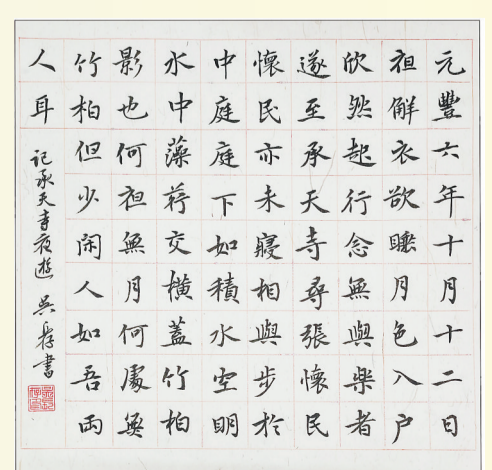 元豐六年十月十二日
夜解衣欲睡月色入户
欣然起行念無與樂者
遂至承天寺尋張懷民
懷民亦未寢相與步於
中庭庭下如積水空明
水中藻荇交橫蓋竹柏
影也何夜無月何處無
竹柏但少閑人如吾兩
人耳
記承天寺夜遊 吳書